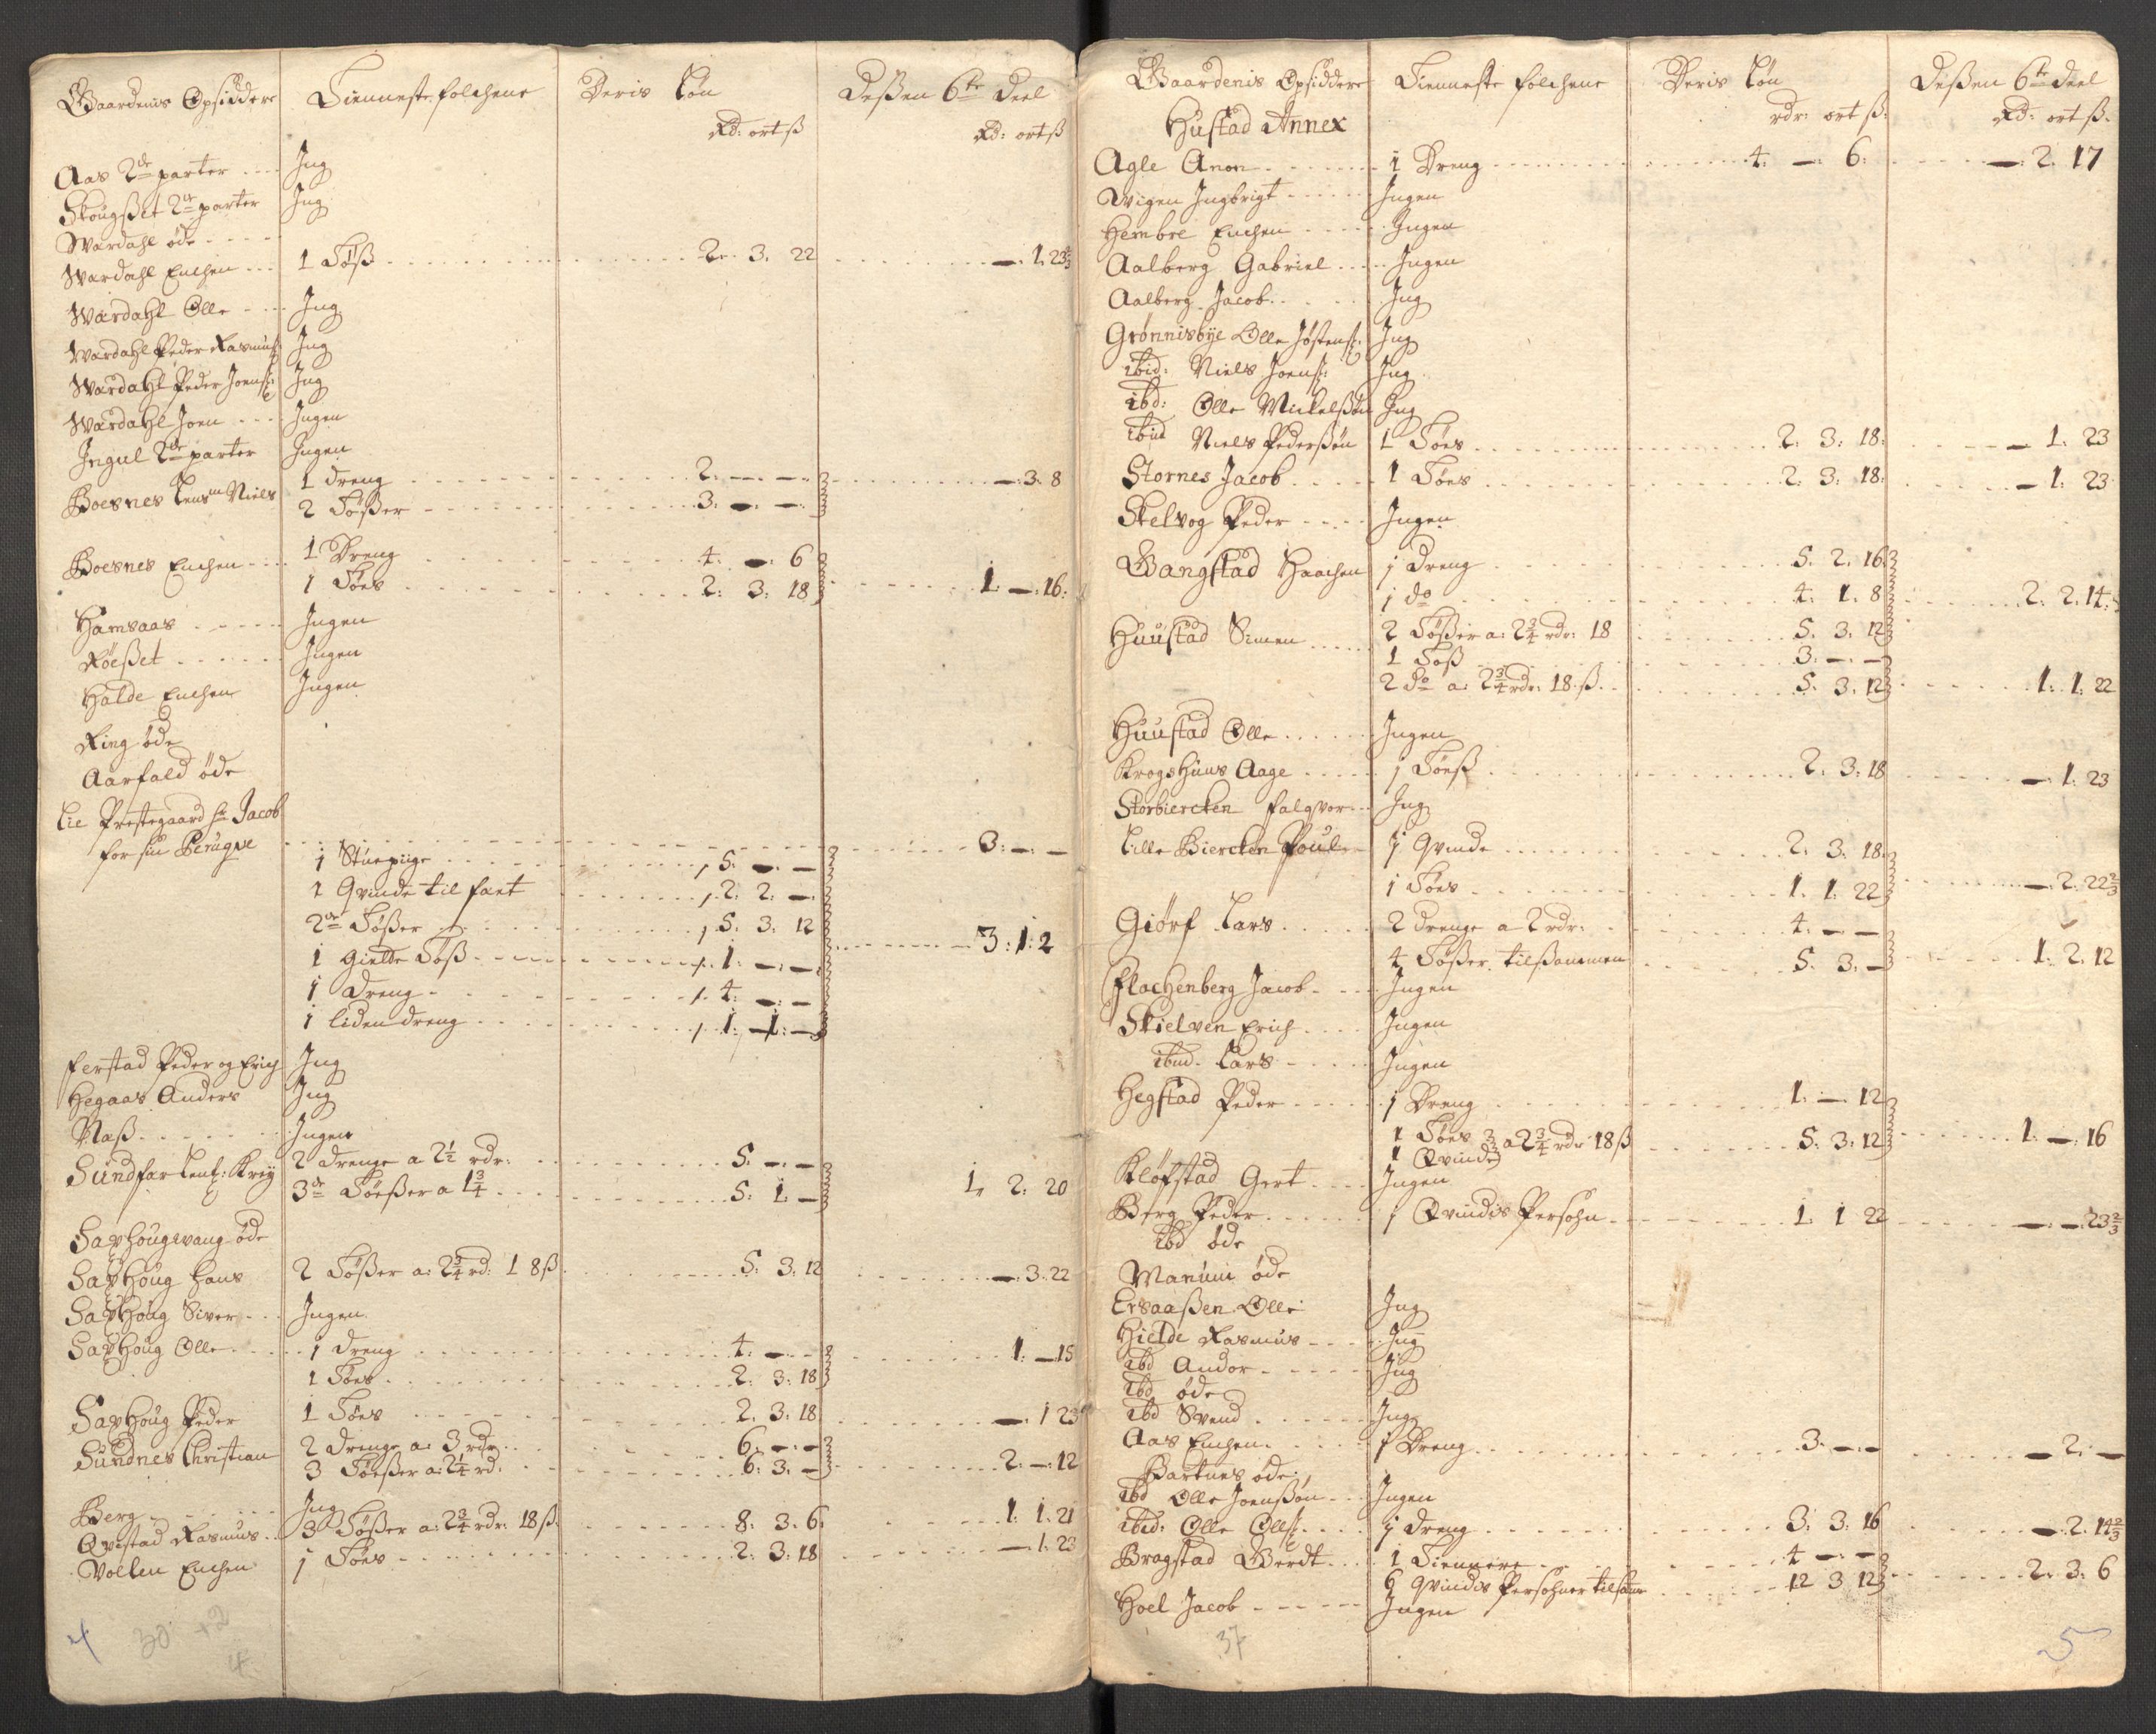 Gaardenis Opsiddere Tienneste folchene Deris Løn Deßen 6te Deel
Rd: ort ß Rd: ort ß
Aas 2de parter ... Ing
Skougset 2de parter Ing
Wardahl øde
Wardahl Enchen ... 1 Tøß 2. 3. 22 —. 1. 23⅔
Wardahl Olle - Ing
Wardahl Peder Rasmus: Ing
Wardahl Peder Joens: Ing
Wardahl Joen ... Ingen
Ingul 2de parter Ingen
Boesnes Lensm Niels 1 dreng 2. —. —. —. 3. 8
2 Tøßer 3. —. —.
Boesnes Enchen 1 Dreng 4. —. 6
1 Tøes 2: 3: 18 1. —. 16:
Hamsaas Ingen
Røeßet Ingen
Halde Enchen Ingen
Ring øde
Aarfald øde
Lie Prestegaard Hr Jacob
for sin Perugve 3. —. —
1 Stuepiige 5. —. —
1 Qvinde til fært 2. 2. —.
2de Tøßer 5. 3. 12 3: 1: 2
1 Giette Tøß 1. —. —.
1 Dreng 4. —. —
1 liden dreng 1. 1. —
Ferstad Peder og Erich Ing
Hegaas Anders Ing
Naß Ingen
Sundfær Lent: Krey 2 drenge a 2½ rdr: 5. —. —
3de Tøeßer a 1¾ 5. 1. — 1. 2: 20
Saxhougwang øde
Saxhoug Hans 2 Tøßer a: 2¾ rd: 18 ß 5: 3. 12 —. 3. 22
Saxhoug Siver Ingen
Saxhoug Olle 1 dreng 4. —. — 1. —. 15
1 Tøes 2. 3: 18
Saxhoug Peder 1 Tøes 2. 3. 18 —. 1 23
Sundnes Christian 2 drenge a: 3 rdr: 6. —. —
3 Tøeßer a: 2¼ rd. 6: 3. — 2. —. 12
Berg Ing
Qvestad Rasmus 3 Tøßer a: 2¾ rdr: 18 ß. 8. 3. 6: 1. 1. 21
Vollen Enchen 1 Tøes 2: 3. 18 —. 1. 23
4 30 +2
4
Gaardenis Opsiddere Tienneste folchene Deris Løn Deßen 6te deel
Hustad Annex rdr: ort ß: Rd: ort ß.
Agle Anon 1 Dreng 4: —. 6: —. 2. 17
Wigen Ingbrigt Ingen
Hembre Enchen Ingen
Aalberg Gabriel Ingen
Aalberg Jacob Ing
Grønnisbye Olle Jøstens: Ing
ibid: Niels Joens: Ing
ibd: Olle Mickelßøn Ing
ibid Niels Pederßøn 1 Tøes 2. 3: 18: — 1. 23
Stornes Jacob 1 Tøes 2: 3. 18: — 1. 23
Skelvog Peder Ingen
Gangstad Haachen 1 dreng 5. 2. 16
1 do 4: 1. 8 2: 2. 14:
Huustad Simen 2 Tøßer a: 2¾ rdr: 18 5. 3. 12
1 Tøß 3. —. —
2 do a: 2¾ rdr: 18 ß. 5. 3. 12 1. 1. 22
Huustad Olle Ingen
Krogshuus Aage 1 Tøeß 2. 3. 18 —. 1. 23
Storbiercken Falqvor Ing
Lille Biercken Poul 1 Qvinde 2. 3. 18
1 Tøes 1. 1. 22 —. 2. 22⅔
Giørf Lars 2 drenge a 2 rdr: 4. —. —
4 Tøßer tilßammen 5. 3. — 1. 2. 12
Flachenberg Jacob Ingen
Skielven Erich Ingen
ibud. Lars Ingen
Hegstad Peder 1 Dreng 1. —. 12
1 Tøes
1 Qvinde a 2¾ rdr 18 ß 5. 3. 12 1. —. 16
Kløfstad Gert Ingen
Berg Peder 1 Qvindis Persohn 1. 1 22 —. —. 23⅔
Ibd øde
Manum øde
Ersaaßen Olle Ing
Hielde Rasmus Ing
Ibd Andor Ing
Ibd øde
Ibd Svend Ing
Aas Enchen 1 Dreng 3. —. — — 2. —
Bartnes øde
Ibd Olle Joenßøn Ingen
Ibid: Olle Olls: 1 dreng 3. 3. 16 —. 2. 14⅔
Bragstad Gerdt 1 Tiennere 4 —. —
6 qvindis Persohner tilsam 12 3 12 2. 3. 6
Hoel Jacob Ingen
37 5